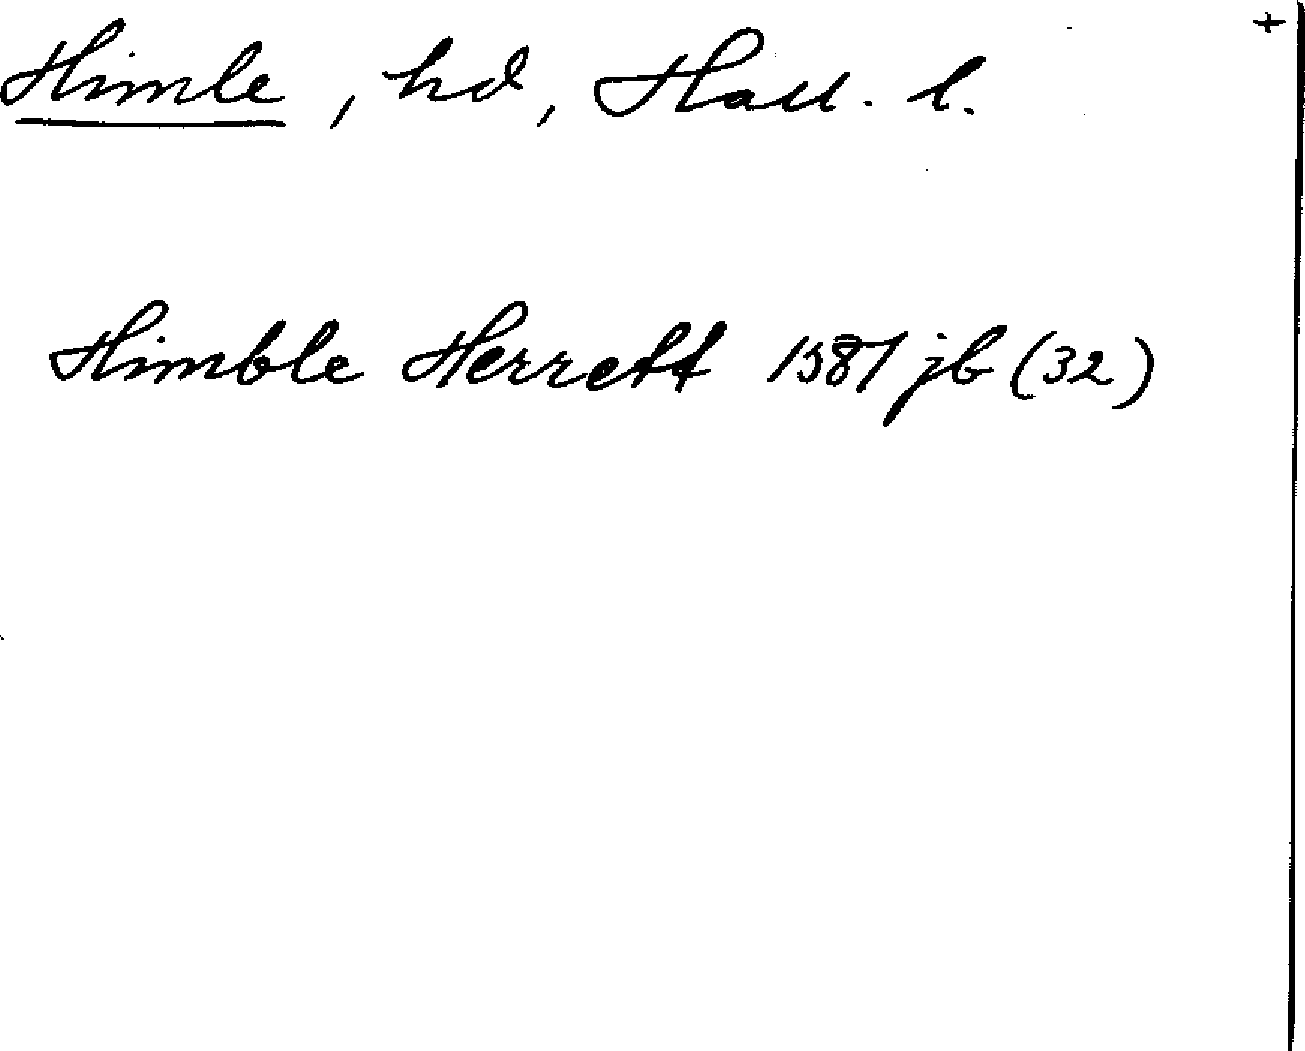 +
Himle, hd, Hall. l.
Himble Herrett 1587 jb (32)